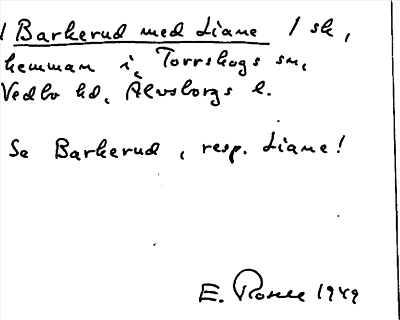 / Barkerud med Liane / sk,
hemman i Torrskogs sn,
Vedbo hd, Älvsborgs l.
Se Barkerud, resp. Liane!
E. Rosell 1949